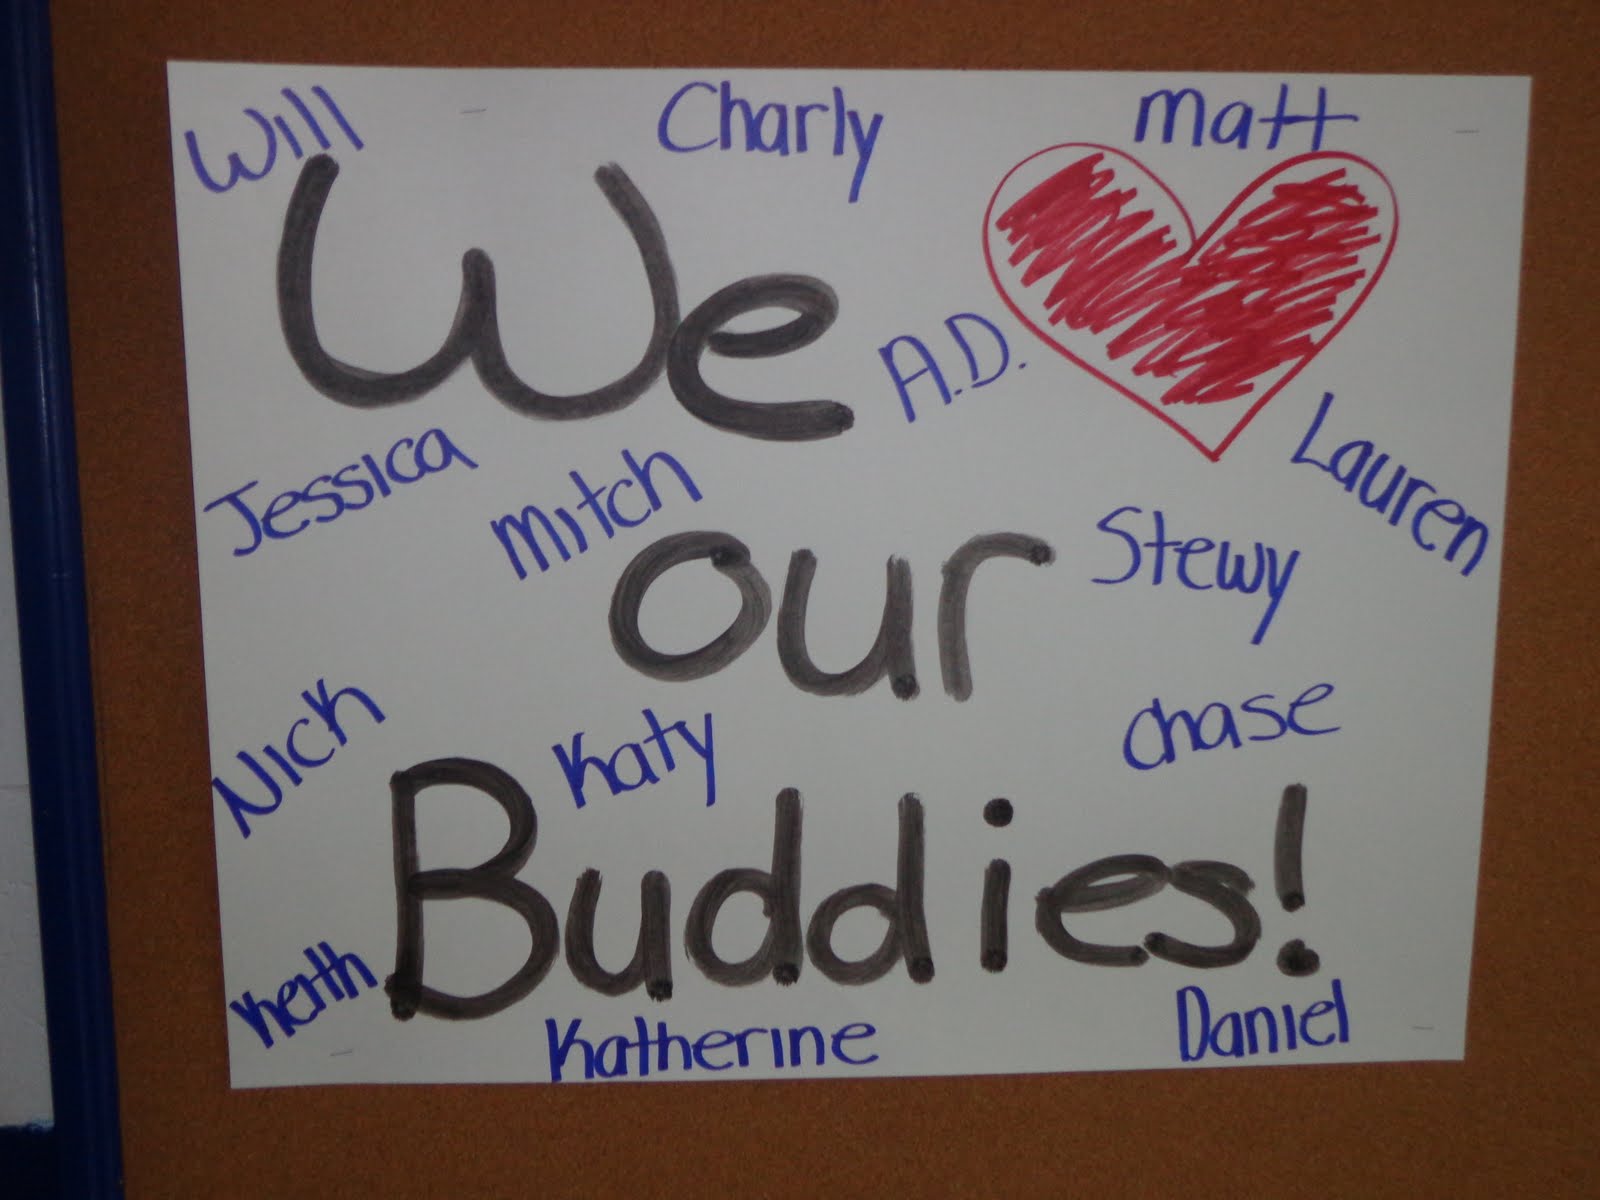 Will
Charly
Matt
We
A.D.
Lauren
Jessica
Mitch
our
Stewy
Nick
Katy
Chase
Buddies!
Keith
Katherine
Daniel